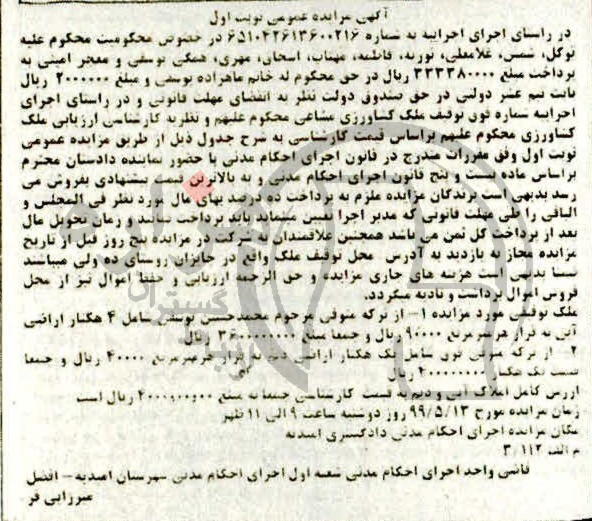 آگهی مزایده عمومی نوبت اول
در راستای اجرای اجراییه به شماره ۶۵۱۰۴۲۶۱۳۶۰۰۲۱۶ در خصوص محکومیت محکوم علیه
توکل، شمس، غلامعلی، توریه، فاطمه، مهتاب، اسحان، مهری، همگی یوسفی و معجر امینی به
پرداخت مبلغ ۳۳۳۳۸۰۰۰۰ ریال در حق محکوم له خانم ماهزاده یوسفی و مبلغ ۲۰۰۰۰۰۰ ریال
بابت نیم عشر دولتی در حق صندوق دولت نظر به انقضای مهلت قانونی و در راستای اجرای
اجراییه شماره فوق توقیف ملک کشاورزی مشاعی محکوم علیهم و نظریه کارشناسی ارزیابی ملک
کشاورزی محکوم علیهم براساس قیمت کارشناسی به شرح جدول ذیل از طریق مزایده عمومی
نوبت اول وفق مقررات مندرج در قانون اجرای احکام مدنی با حضور نماینده دادستان محترم
براساس ماده بیست و پنج قانون اجرای احکام مدنی و به بالاترین قیمت پیشنهادی بفروش می
رسد بدیهی است برندگان مزایده ملزم به پرداخت ده درصد بهای مال مورد نظر فی المجلس و
الباقی را طی مهلت قانونی که مدیر اجرا تعیین مینماید باید پرداخت نمایند و زمان تحویل مال
بعد از پرداخت کل ثمن می باشد همچنین علاقمندان به شرکت در مزایده پنج روز قبل از تاریخ
مزایده مجاز به بازدید به آدرس محل توقیف ملک واقع در جایزان روستای ده ولی میباشند
ضمنا بدیهی است هزینه های جاری مزایده و حق الزحمه ارزیابی و حفظ اموال نیز از محل
فروش اموال برداشت و تادیه میگردد.
ملک توقیفی مورد مزایده ۱- از ترکه متوفی مرحوم محمدحسین یوسفی شامل ۴ هکتار اراضی
آبی به قرار هرمترمربع ۹۰۰۰۰ ریال و جمعا مبلغ ۳۶۰۰۰۰۰۰۰۰ ریال
۲- از ترکه متوفی فوق شامل یک هکتار اراضی دیم به قرار هرمترمربع ۴۰۰۰۰ ریال و جمعا
قیمت یک هکتار ۴۰۰۰۰۰۰۰۰ ریال
ارزش کامل املاک آبی و دیم به قیمت کارشناسی جمعا به مبلغ ۴۰۰۰۰۰۰۰۰۰ ریال است
زمان مزایده مورخ ۹۹/۵/۱۳ روز دوشنبه ساعت ۹ الی ۱۱ ظهر
مکان مزایده اجرای احکام مدنی دادگستری امیدیه
م الف ۳/۱۱۲
قاضی واحد اجرای احکام مدنی شعبه اول اجرای احکام مدنی شهرستان امیدیه - افضل
میرزایی فر